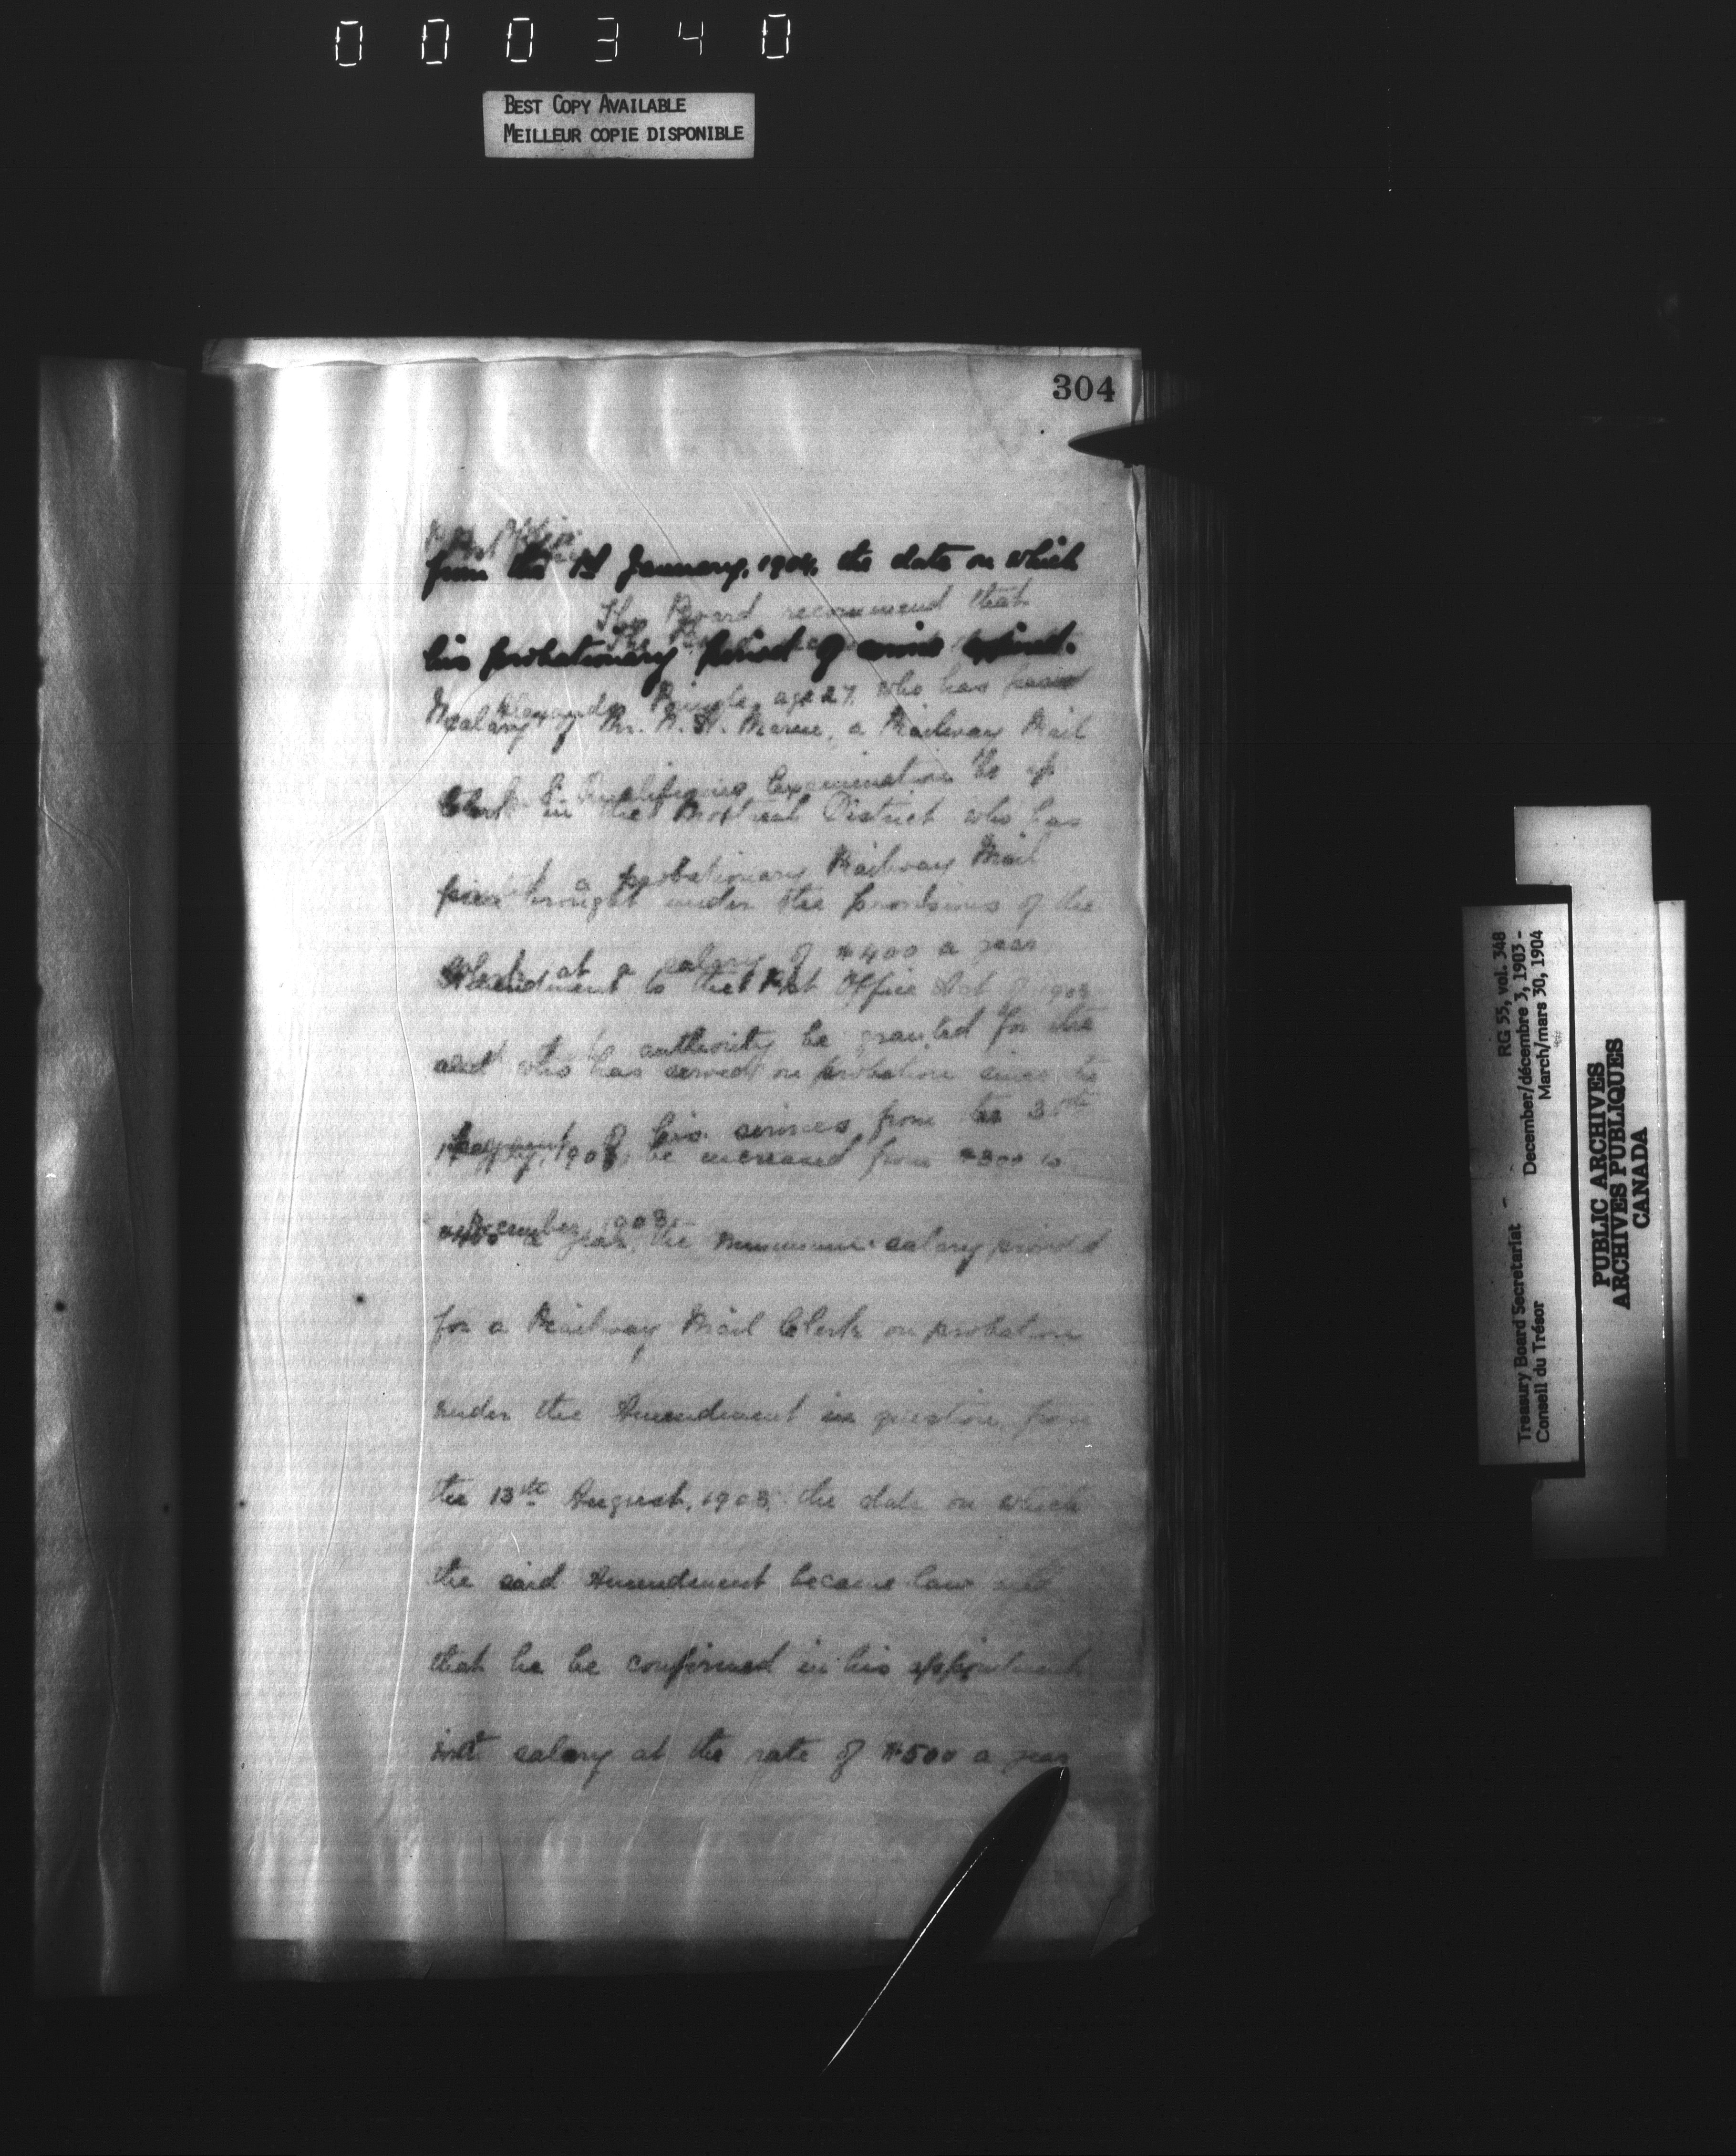 000340
BEST COPY AVAILABLE
MEILLEUR COPIE DISPONIBLE
304
Post Office
from the 1st January, 1904, the date on which
The Board recommend that
his probationary period of
Alexander Pringle, age 27, who has passed
salary of Mr. a Railway Mail
Qualifying Examination be ap
Clerk in the Montreal District who has
a probationary Railway Mail
brought under the provisions of the
Clerk at a salary of $400 a year
Amendment to the Post Office Act of 1903
authority be granted for the
and who has served on probation since the
payment of his services from the 30th
be increased from $300 to
December, 1903.
$400 a year, the minimum salary provided
for a Railway Mail Clerk on probation
under the Amendment in question, from
the 13th August, 1903, the date on which
the said Amendment became law and
that he be confirmed in his appointment
with salary at the rate of $500 a year
Treasury Board Secretariat - RG 55, vol. 348
Conseil du Trésor December/décembre 3, 1903 -
March/mars 30, 1904
PUBLIC ARCHIVES
ARCHIVES PUBLIQUES
CANADA